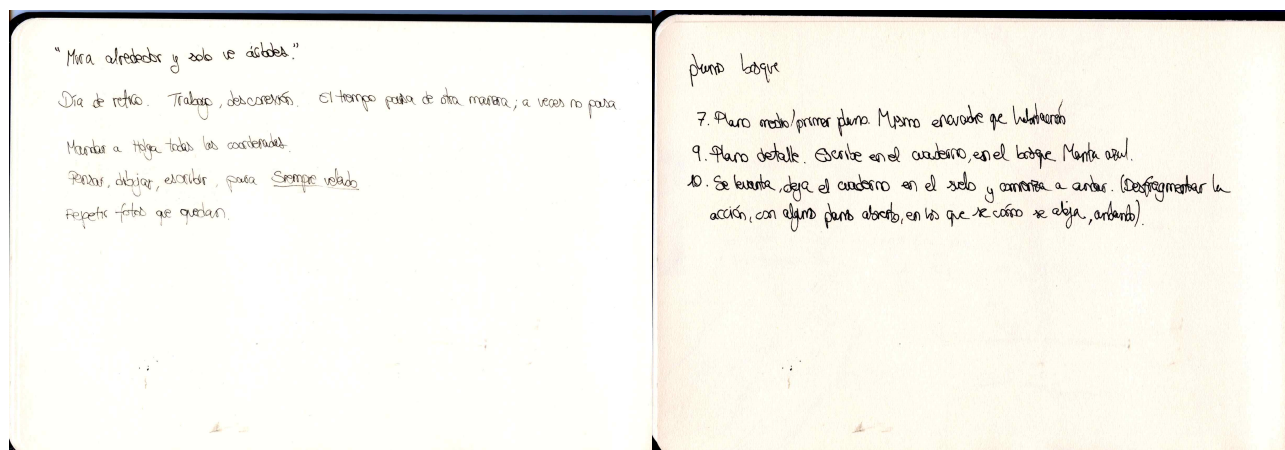 "Mira alrededor y solo ve árboles."
Día de retiro. Trabajo, desconexión. El tiempo pasa de otra manera; a veces no pasa
Mandar a Helga todas las coordenadas.
Pensar, dibujar, escribir para Siempre velado
Repetir fotos que quedan.
plano bosque
7. Plano medio/primer plano. Mismo encuadre que habitación
9. Plano detalle. Escribe en el cuaderno, en el bosque Manta azul.
10. Se levanta, deja el cuaderno en el suelo y comienza a andar. (Desfragmentar la
acción, con algún plano abierto, en los que se cómo se aleja, andando).